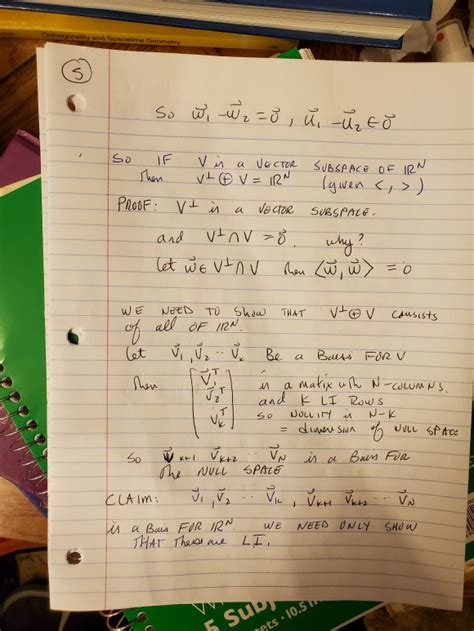 Orthogonality and Spacetime Geometry
5
So w⃗₁ - w⃗₂ = 0⃗, u⃗₁ - u⃗₂ ∈ 0⃗
So IF V is a VECTOR SUBSPACE OF ℝᴺ
Then V⊥ ⊕ V = ℝᴺ (given < , >)
PROOF: V⊥ is a VECTOR SUBSPACE.
and V⊥ ∩ V = 0⃗. why?
let w⃗ ∈ V⊥ ∩ V then ⟨w⃗, w⃗⟩ = 0
WE NEED TO SHOW THAT V⊥ ⊕ V consists
of all OF ℝᴺ.
let v⃗₁, v⃗₂ ... v⃗ₖ Be a Basis FOR V
Then [v⃗₁ᵀ v⃗₂ᵀ v⃗ₖᵀ] is a matrix with N-COLUMNS.
and K LI ROWS
SO NULLITY is N-K
= dimension of NULL SPACE
So v⃗ₖ₊₁ v⃗ₖ₊₂ ... v⃗ɴ is a Basis FOR
the NULL SPACE
CLAIM: v⃗₁, v⃗₂ ... v⃗ₖ, v⃗ₖ₊₁ v⃗ₖ₊₂ ... v⃗ɴ
is a Basis FOR ℝᴺ. WE NEED ONLY SHOW
THAT These are LI.
5 Subj
ets · 10.5 in